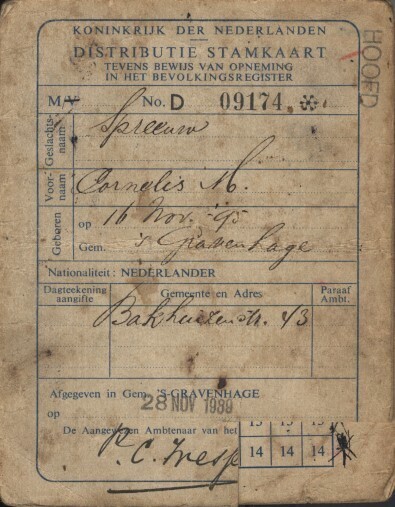 KONINKRIJK DER NEDERLANDEN
DISTRIBUTIE STAMKAART
TEVENS BEWIJS VAN OPNEMING
IN HET BEVOLKINGSREGISTER
HOOFD
M.V. No. D 09174 ※
Geslachtsnaam Spreeuw
Voornaam Cornelis M.
Geboren op 16 Nov. '95
Gem. 's Gravenhage
Nationaliteit: NEDERLANDER
Dagteekening aangifte Gemeente en Adres Paraaf Ambt.
Bakhuizenstr. 43
Afgegeven in Gem. 'S-GRAVENHAGE
op 28 NOV 1939
De Aangewezen Ambtenaar van het
14 14 14